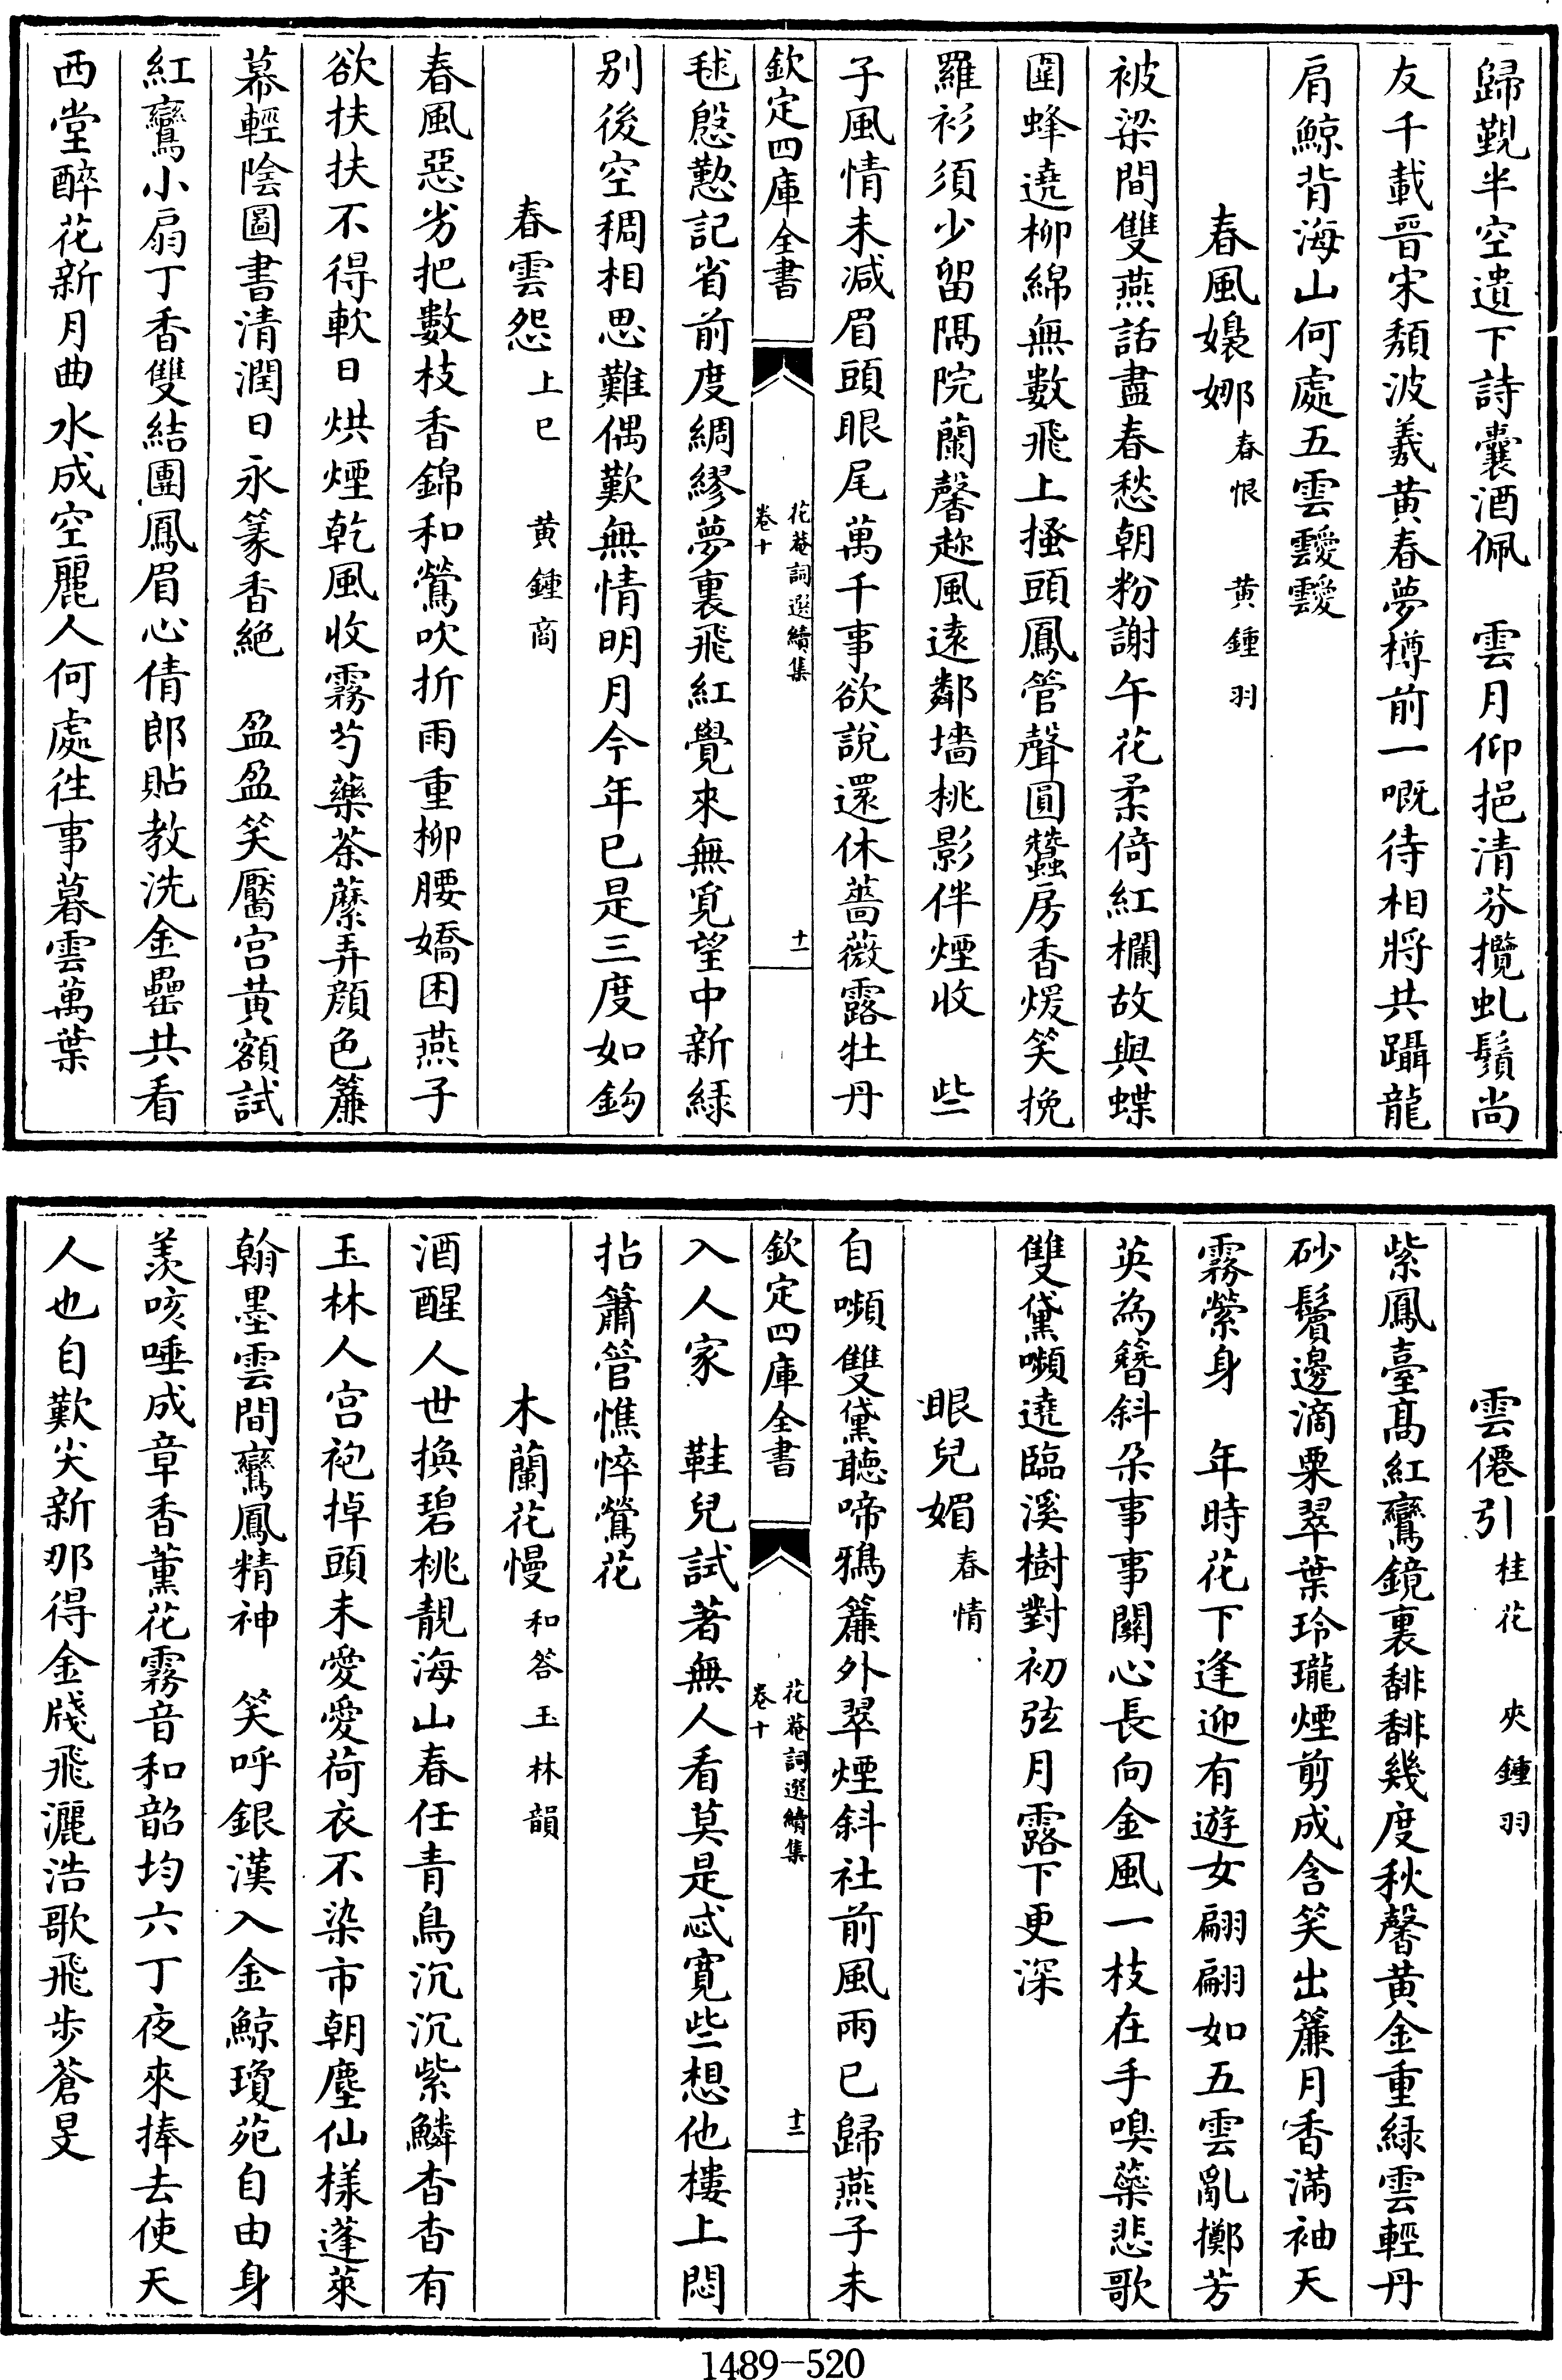 歸覲半空遺下詩囊酒佩　雲月仰挹清芬攬虬鬚尚
友千載晉宋頽波羲黄春夢樽前一嘅待相將共躡龍
肩鯨背海山何處五雲靉靉
春風嬝娜春恨　黄鍾羽
被梁間雙燕話盡春愁朝粉謝午花柔倚紅欄故與蝶
圍蜂遶柳綿無數飛上搔頭鳳管聲圓蠶房香煖笑挽
羅衫須少留隅院蘭馨趂風遠鄰墻桃影伴煙收　些
子風情未減眉頭眼尾萬千事欲說還休薔薇露牡丹
欽定四庫全書
花菴詞選續集
卷十
十一
毬慇懃記省前度綢繆夢裏飛紅覺來無覓望中新緑
别後空稠相思難偶歎無情明月今年已是三度如鈎
春雲怨上巳　黄鍾商
春風惡劣把數枝香錦和鶯吹折雨重柳腰嬌困燕子
欲扶扶不得軟日烘煙乾風收霧芍藥荼蘼弄顔色簾
幕輕陰圖書清潤日永篆香絶　盈盈笑靨宫黄額試
紅鸞小扇丁香雙結團鳳眉心倩郎貼教洗金罍共看
西堂醉花新月曲水成空麗人何處徃事暮雲萬葉
雲僊引桂花　夾鍾羽
紫鳳臺髙紅鸞鏡裏馡馡幾度秋馨黄金重緑雲輕丹
砂鬢邊滴粟翠葉玲瓏煙剪成含笑出簾月香滿袖天
霧縈身　年時花下逢迎有遊女翩翩如五雲亂擲芳
英為簪斜朶事事關心長向金風一枝在手嗅蘂悲歌
雙黛嚬遶臨溪樹對初弦月露下更深
眼兒媚春情
自嚬雙黛聽啼鴉簾外翠煙斜社前風雨已歸燕子未
欽定四庫全書
花菴詞選續集
卷十
十二
入人家　鞋兒試著無人看莫是忒寛些想他樓上悶
拈簫管憔悴鶯花
木蘭花慢和答玉林韻
酒醒人世換碧桃靚海山春任青鳥沉沉紫鱗杳杳有
玉林人宫袍掉頭未愛愛荷衣不染市朝塵仙樣蓬萊
翰墨雲間鸞鳳精神　笑呼銀漢入金鯨瓊苑自由身
羡咳唾成章香薫花霧音和韶均六丁夜來捧去使天
人也自歎尖新那得金牋飛灑浩歌飛步蒼旻
1489-520